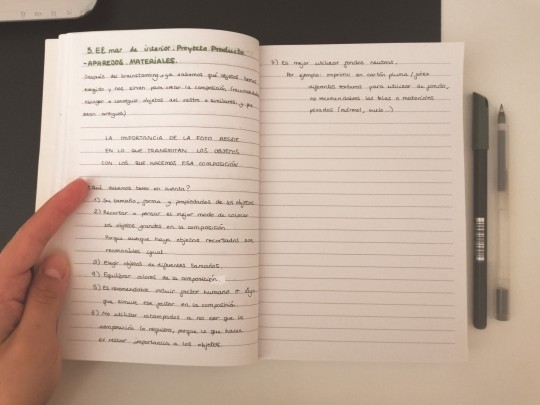 5. El mar de interior. Proyecto Producto
- APAREDOS MATERIALES.
Después del brainstorming ya sabemos qué objetos hemos
elegido y nos sirven para crear la composición
escoger o conseguir objetos del rastro o similares, y que
sean antiguos)
LA IMPORTANCIA DE LA FOTO RESIDE
EN LO QUE TRANSMITAN LOS OBJETOS
CON LOS QUE HACEMOS ESA COMPOSICIÓN.
¿Qué debemos tener en cuenta?
1) Su tamaño, forma y propiedades de los objetos.
2) Recortar o pensar el mejor modo de colocar
los objetos grandes en la composición
Porque aunque haya objetos recortados son
reconocibles igual.
3) Elegir objetos de diferentes tamaños.
4) Equilibrar colores de la composición.
5) Es recomendable incluir factor humano o algo
que simule ese factor en la composición.
6) No utilizar estampados a no ser que la
composición lo requiera, porque lo que hacen
es restar importancia a los objetos.
7) Es mejor utilizar fondos neutros.
Por ejemplo: imprimir en cartón pluma / forex
diferentes texturas para utilizar de fondo,
no recomendables las telas o materiales
pesados (mármol, suelo...)